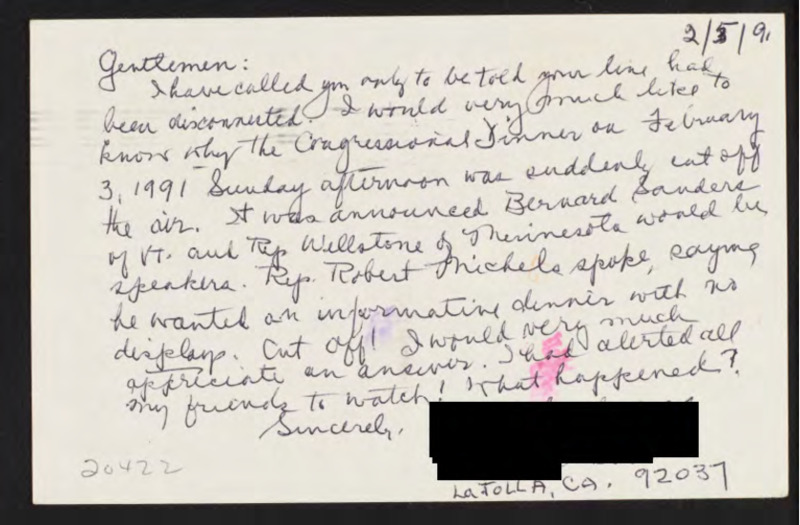 2/5/91
Gentlemen:
I have called you only to be told your line had
been disconnected. I would very much like to
know why the Congressional Dinner on February
3, 1991 Sunday afternoon was suddenly cut off
the air. It was announced Bernard Sanders
of Vt. and Rep Wellstone of Minnesota would be
speakers. Rep. Robert Michels spoke, saying
he wanted an informative dinner with no
displays. Cut off! I would very much
appreciate an answer. I had alerted all
my friends to watch! What happened?
Sincerely,
20422
LaJOLLA, CA. 92037